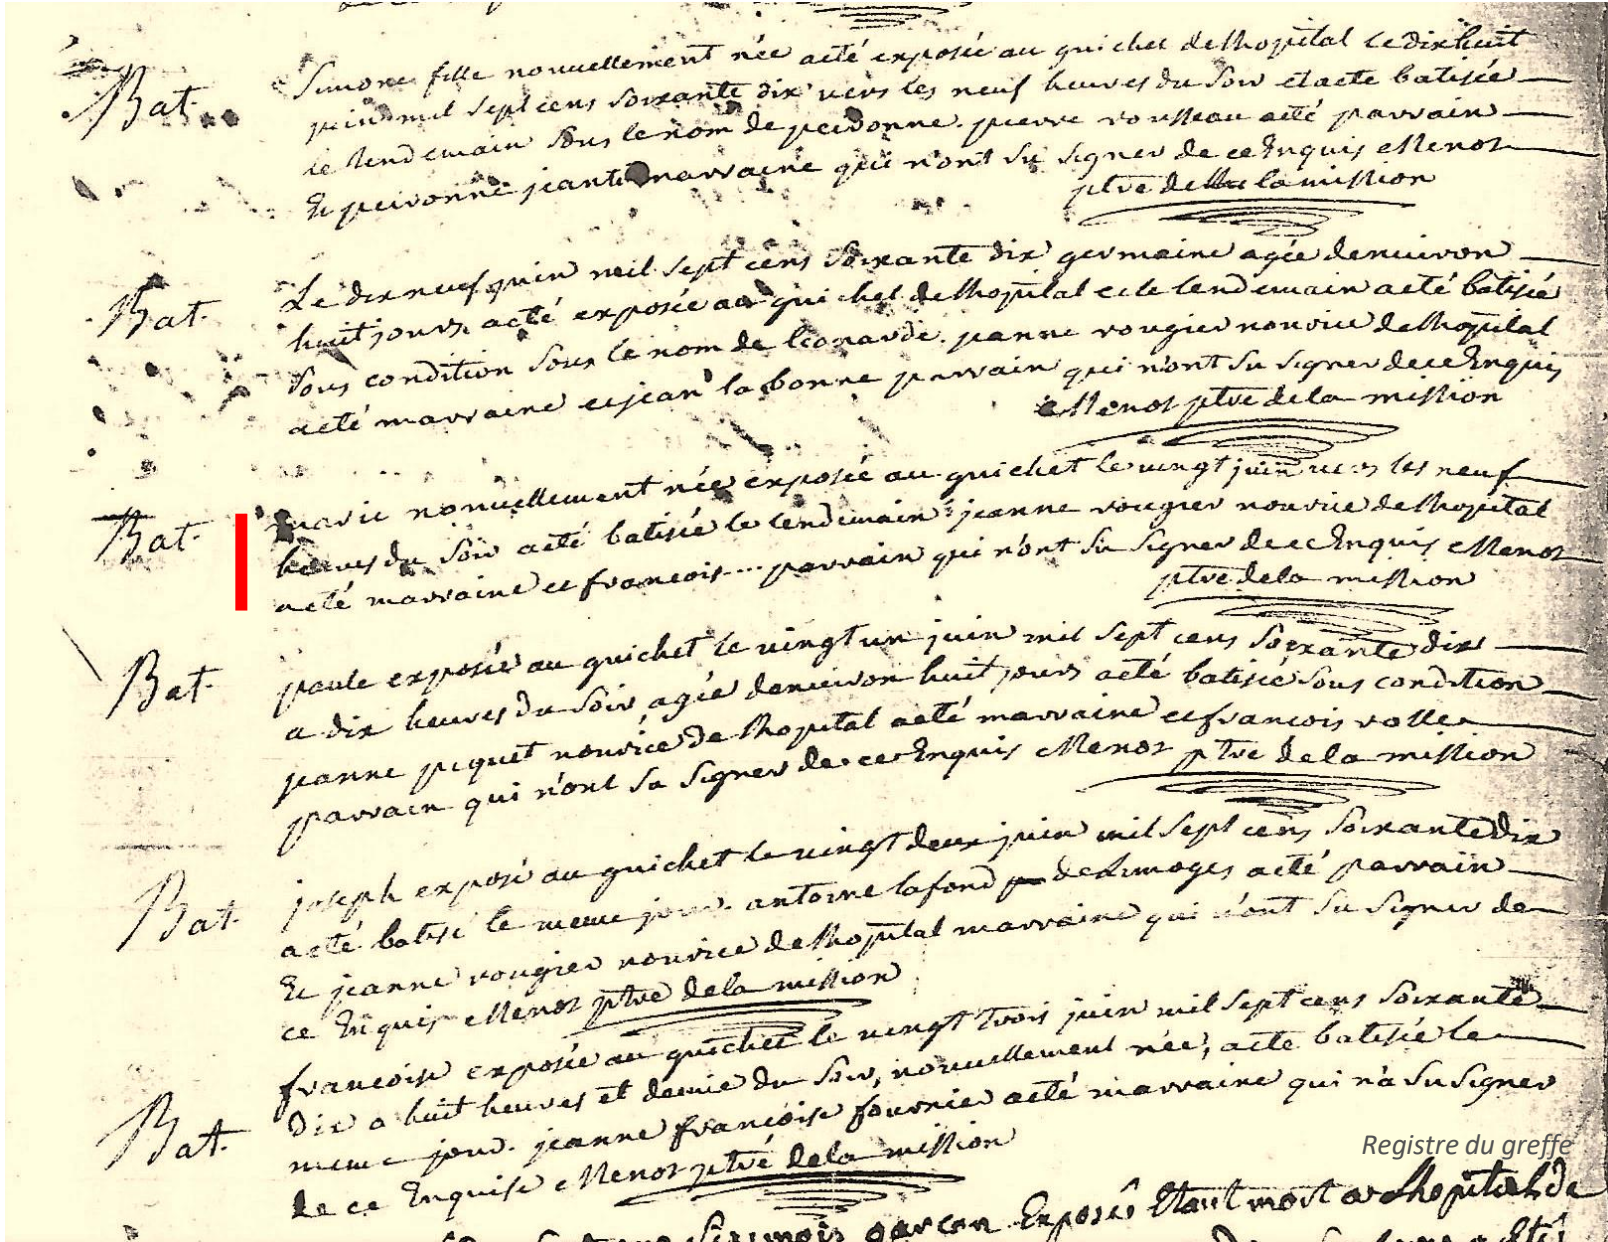 Bat.
Simone fille nouvellement née acté exposée au guichet delhopital le dixhuit
juin mil sept cens soixante dix vers les neuf heures du soir et acte batisée
le lendemain sous le nom de peironne. pierre rousseau acté parrain
Et peironne jeante marraine qui n'ont su signer de ce Enquis Menot
ptre de la mission
Bat.
Le dix neuf juin mil sept cens soixante dix germaine agée denviron
huit jours acté exposée au guichet delhopital et le lendemain acté batisée
sous condition sous le nom de leonarde. jeanne rougier nourice delhopital
acté marraine et jean labonne parrain qui n'ont su signer de ce Enquis
Menot ptre dela mission
Bat.
marie nouvellement née exposée au guichet le vingt juin vers les neuf
heures du soir acté batisée le lendemain jeanne rougier nourice delhopital
acté marraine et francois ... parrain qui n'ont su signer de ce Enquis Menot
ptre dela mission
Bat.
paule exposée au guichet le vingt un juin mil sept cens soixante dix
a dix heures du soir agée denviron huit jours acté batisée sous condition
jeanne piquet nourice de lhopital acté marraine et francois
parrain qui n'ont su signer de ce Enquis Menot ptre de la mission
Bat.
joseph exposé au guichet le vingt deux juin mil sept cens soixante dix
acté batisé le meme jour. antoine lafond de Limoges acté parrain
Et jeanne rougier nourice delhopital marraine qui n'ont su signer de
ce Enquis Menot ptre dela mission
Bat.
francoise exposée au guichet le vingt trois juin mil sept cens soixante
dix a huit heures et demie du soir, nouvellement née, acte batisée le
meme jour. jeanne francoise fournier acté marraine qui n'a su signer
de ce Enquise Menot ptre dela mission
Registre du greffe
six mois garcon Exposé Etant mort a lhopital de